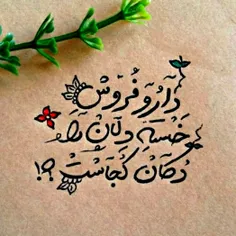 دارو فُروشِ
خَستِهِ دِلان را
دُکانْ کُجاست ؟!